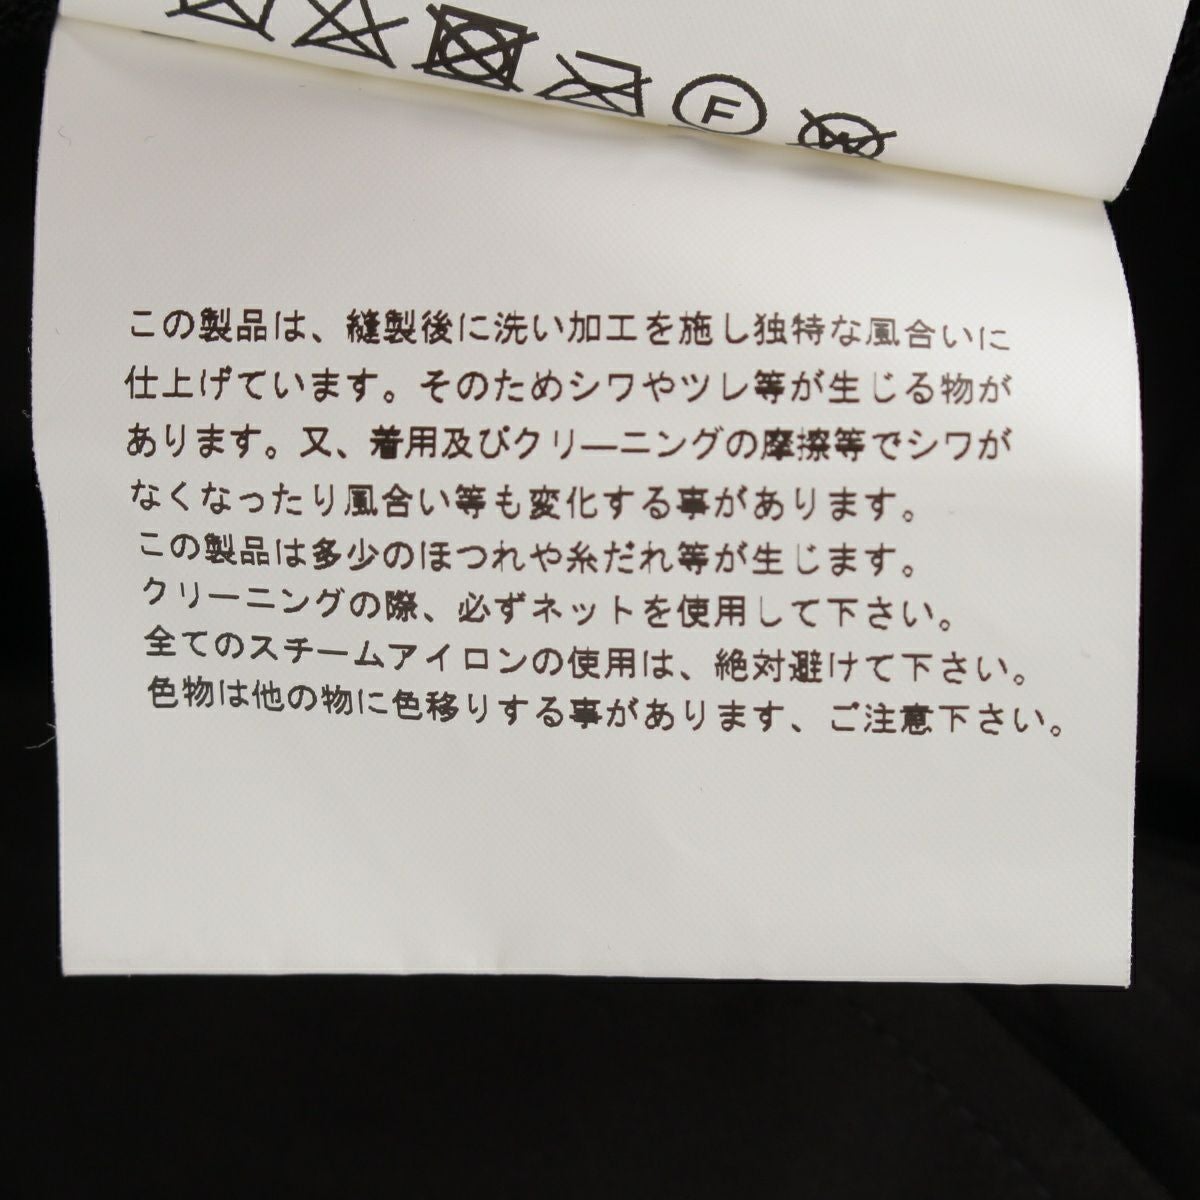 F
W
この製品は、縫製後に洗い加工を施し独特な風合いに
仕上げています。そのためシワやツレ等が生じる物が
あります。又、着用及びクリーニングの摩擦等でシワが
なくなったり風合い等も変化する事があります。
この製品は多少のほつれや糸だれ等が生じます。
クリーニングの際、必ずネットを使用して下さい。
全てのスチームアイロンの使用は、絶対避けて下さい。
色物は他の物に色移りする事があります、ご注意下さい。